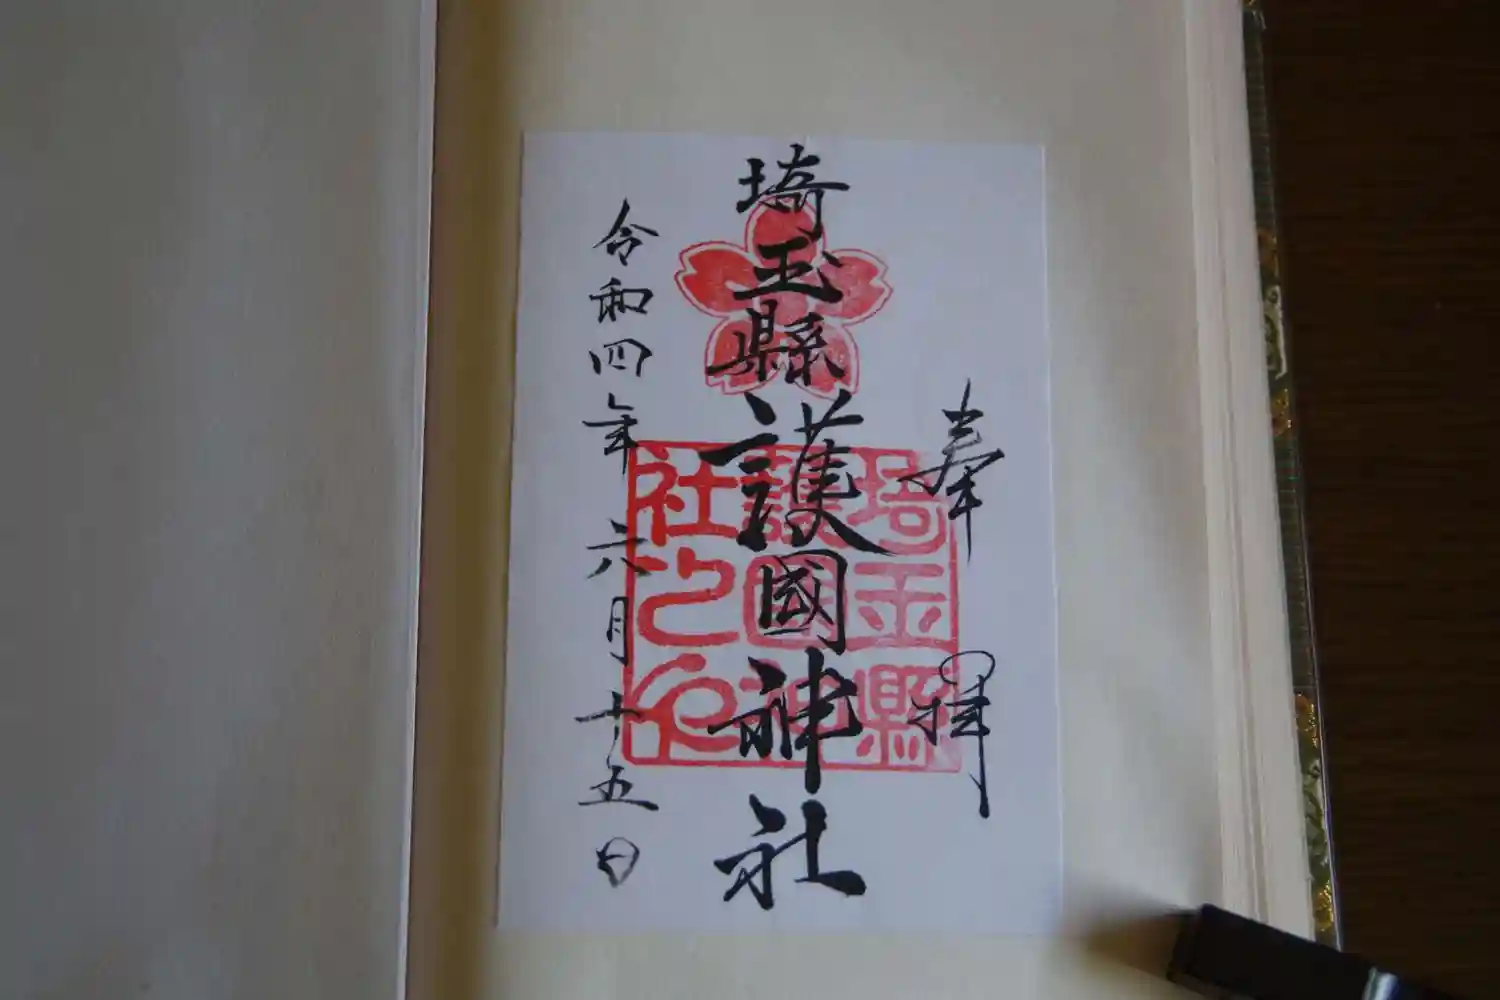 奉拝
埼玉縣護國神社
令和四年六月十五日
埼玉縣
護國神
社之印